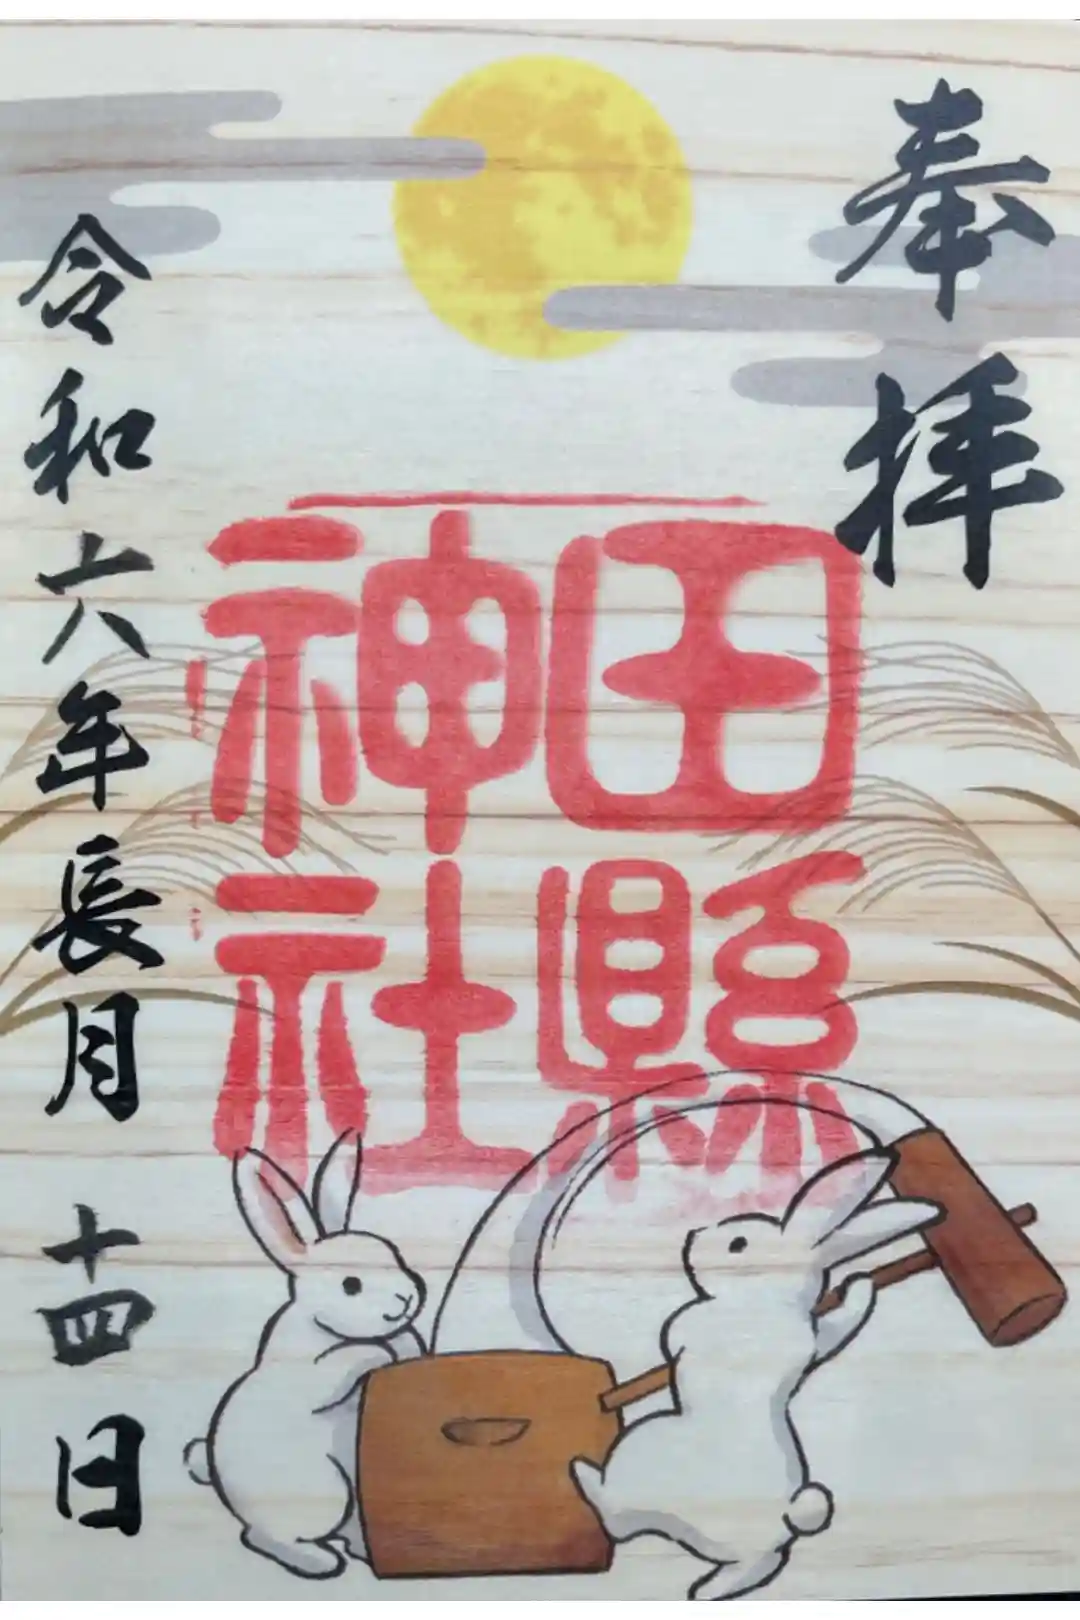 奉拝
田縣
神社
令和六年長月十四日